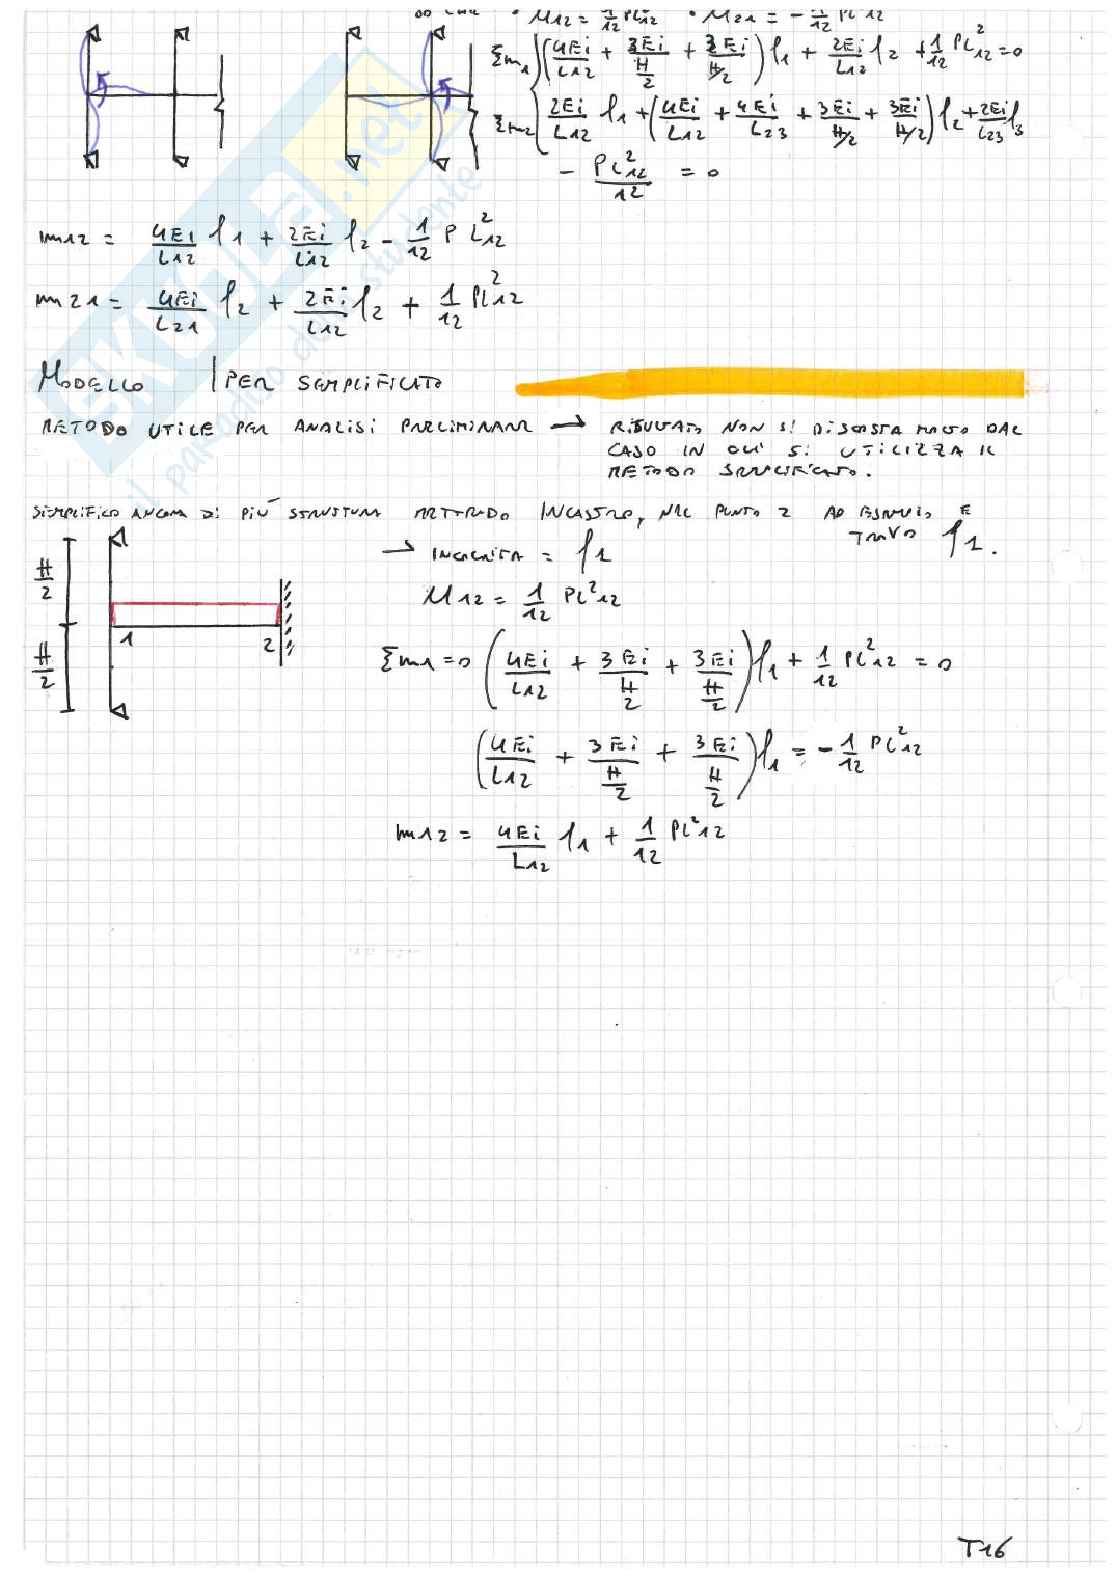 M12 = 1/12 PL²12 • M21 = - 1/12 PL²12
Σm1 (4Ei/L12 + 3Ei/H/2 + 3Ei/H/2) φ1 + 2Ei/L12 φ2 + 1/12 PL²12 = 0
Σm2 2Ei/L12 φ1 + (4Ei/L12 + 4Ei/L23 + 3Ei/H/2 + 3Ei/H/2) φ2 + 2Ei/L23 φ3
- PL²12/12 = 0
m12 = 4Ei/L12 φ1 + 2Ei/L12 φ2 - 1/12 P L²12
m21 = 4Ei/L21 φ2 + 2Ei/L12 φ2 + 1/12 PL²12
MODELLO IPER SEMPLIFICATO
METODO UTILE PER ANALISI PRELIMINARI → RISULTATO NON SI DISCOSTA MOLTO DAL
CASO IN CUI SI UTILIZZA IL
METODO SEMPLIFICATO.
SEMPLIFICO ANCORA DI PIÙ STRUTTURA METTENDO INCASTRO, NEL PUNTO 2 AD ESEMPIO E
TROVO φ1.
→ INCOGNITA = φ1
H/2
H/2
1 2
M12 = 1/12 PL²12
Σm1=0 (4Ei/L12 + 3Ei/H/2 + 3Ei/H/2) φ1 + 1/12 PL²12 = 0
(4Ei/L12 + 3Ei/H/2 + 3Ei/H/2) φ1 = - 1/12 PL²12
m12 = 4Ei/L12 φ1 + 1/12 PL²12
T16
SKUOLA.net
il paradiso dello studente